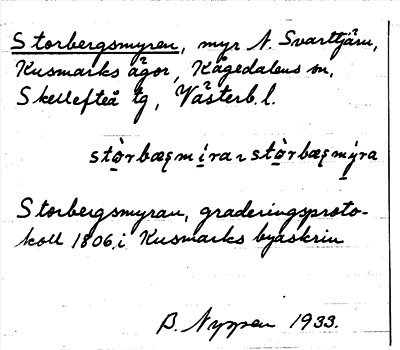 Storbergsmyren, myr N. Svarttjärn,
Kusmarks ägor, Kågedalens sn,
Skellefteå tg, Västerb. l.
stòrbæꞔmíra ~ stòrbæꞔmýra
Storbergsmyran, graderingsproto-
koll 1806, i Kusmarks byaskrin
B. Nyppen 1933.